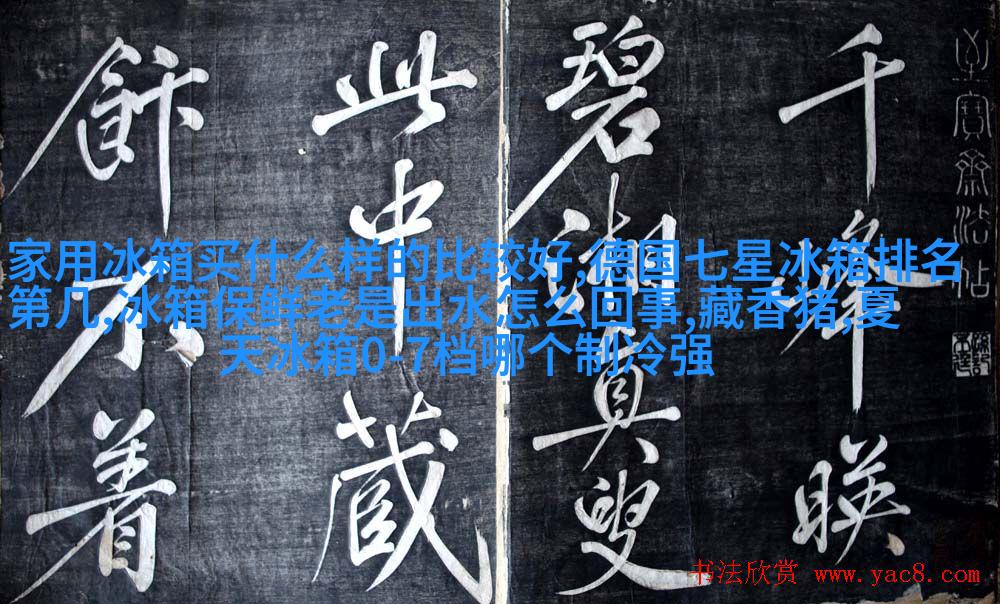 至寶齋法帖
千峯映
碧湘真叟
此中藏
飰不着
家用冰箱买什么样的比较好,德国七星冰箱排名
第几,冰箱保鲜老是出水怎么回事,藏香猪,夏
天冰箱0-7档哪个制冷强
书法欣赏 www.yac8.com